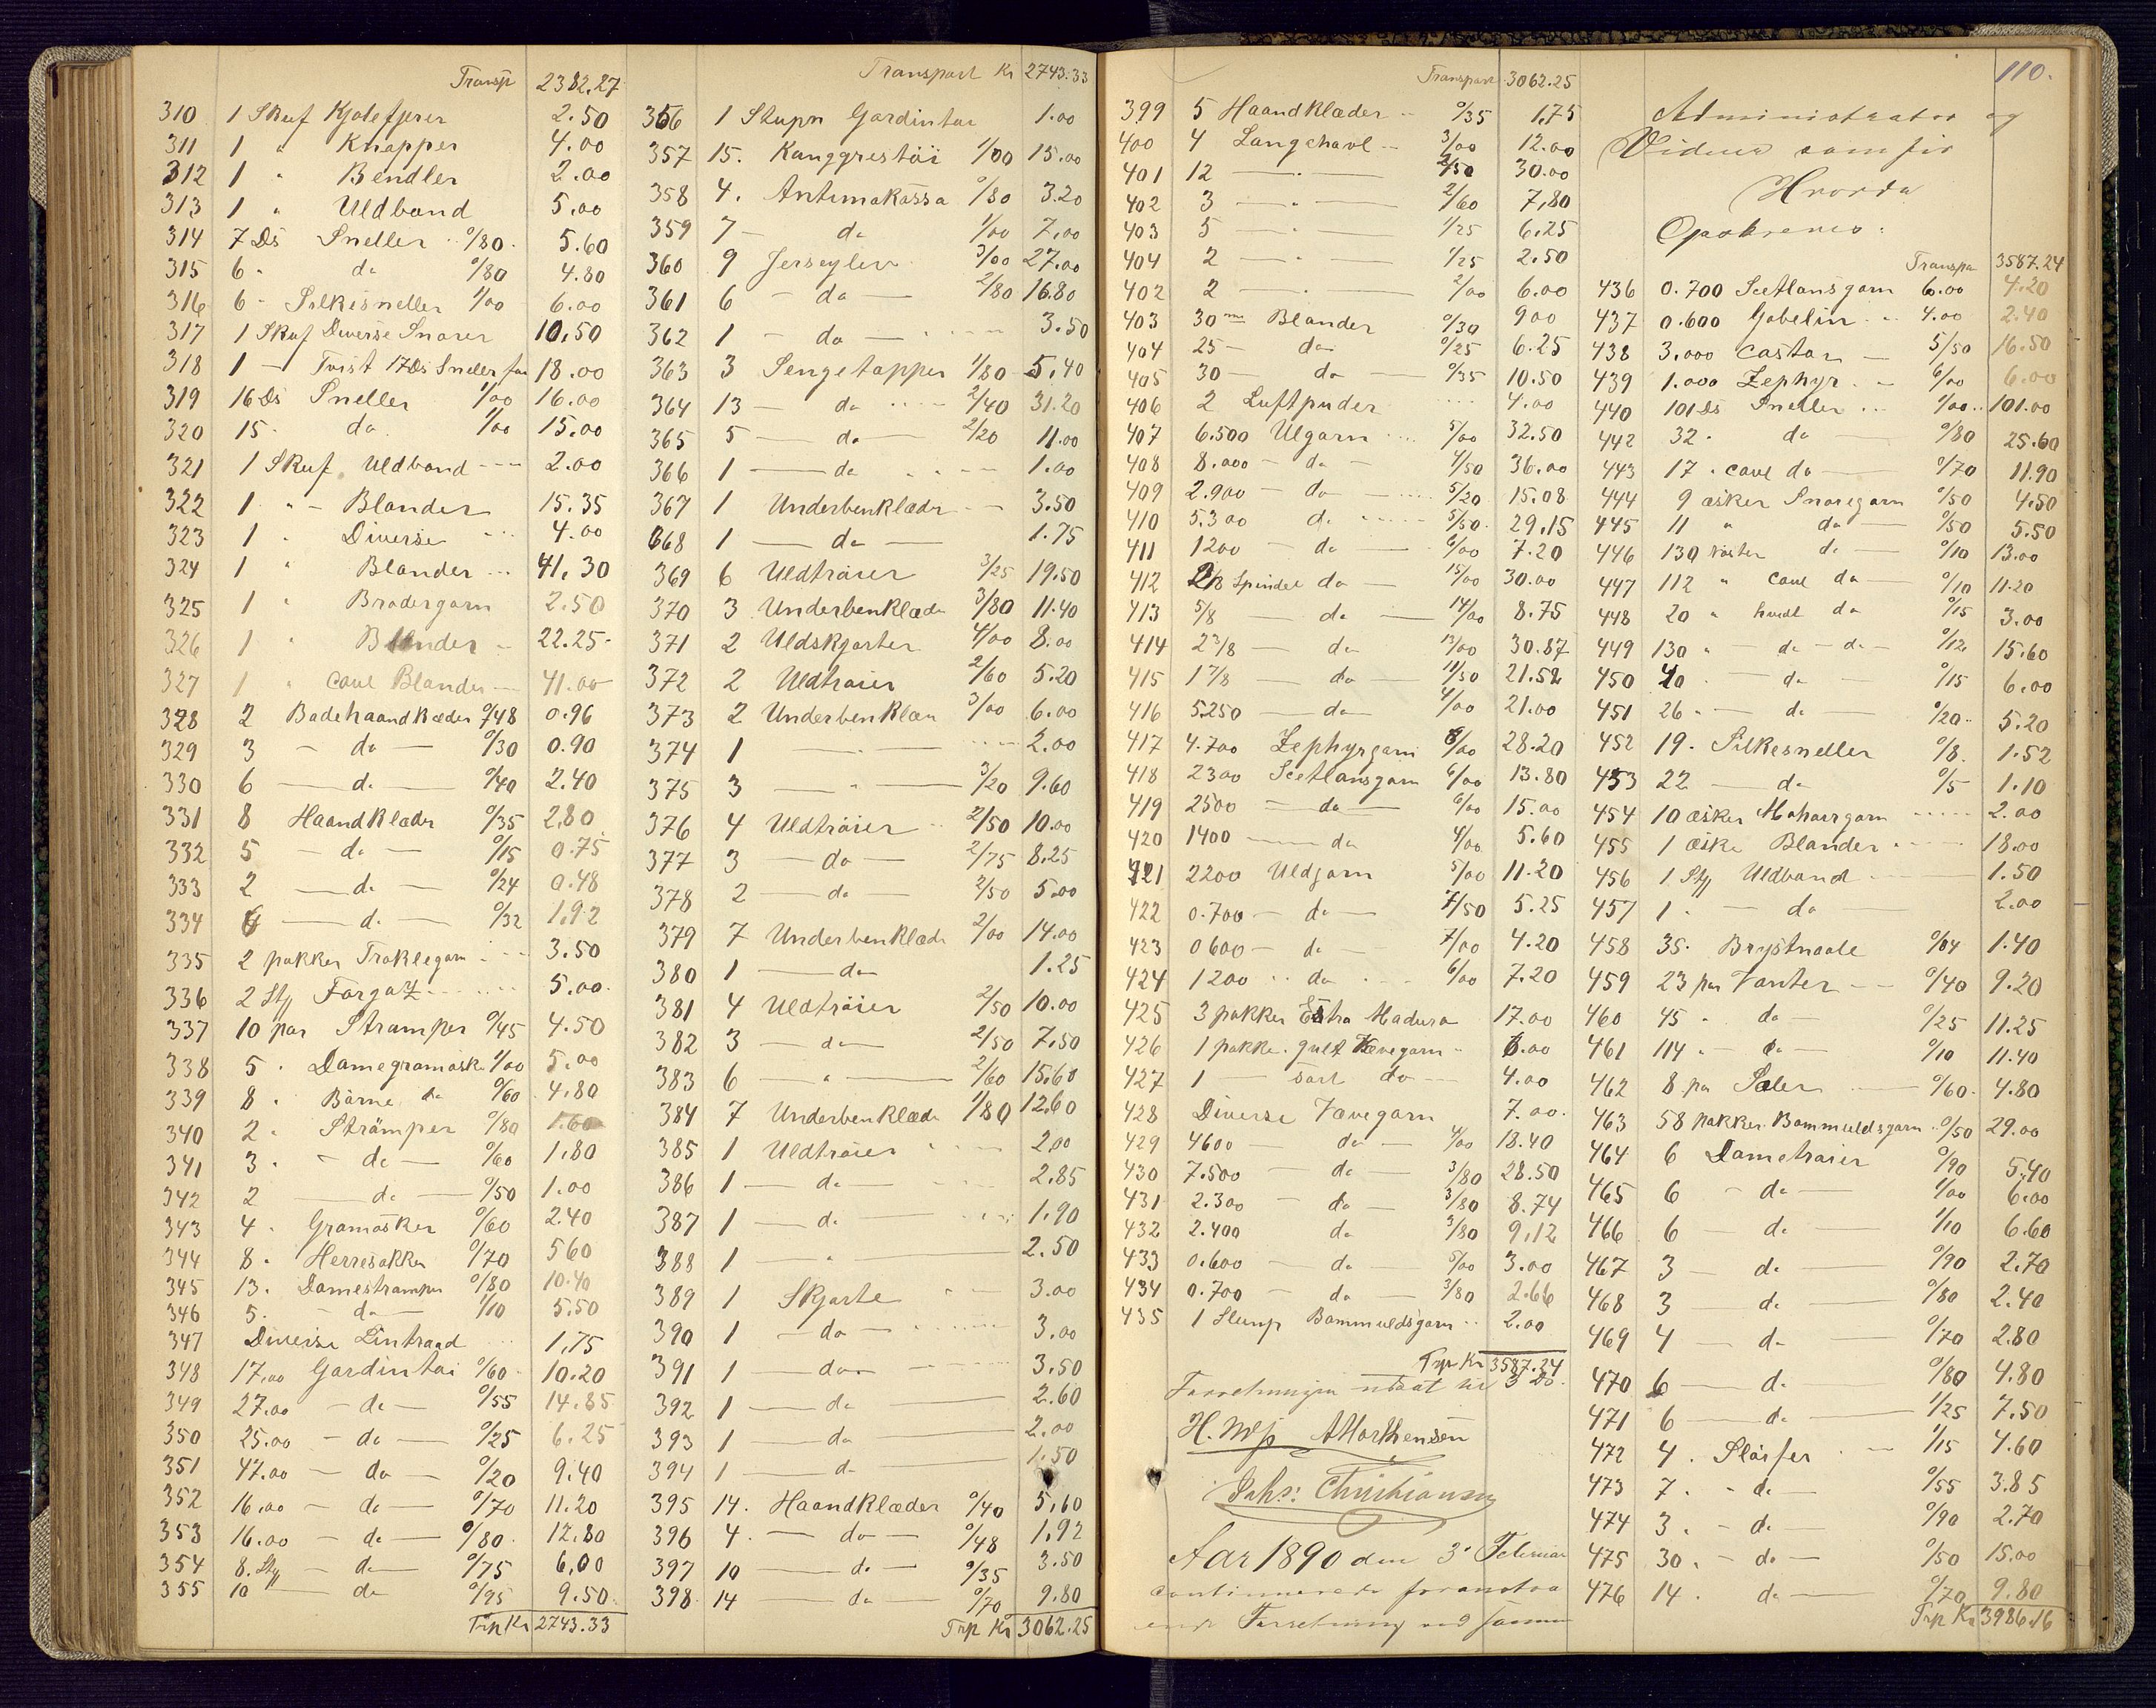 Transp 2382.27
310 1 Skuf Kjolefjærer 2.50
311 1 " Knapper 4.00
312 1 " Bendler 2.00
313 1 " Uldbond 5.00
314 7 Ds Sneller 0/80 5.60
315 6 " do 0/80 4.80
316 6 - Silkesneller 1/00 6.00
317 1 Skuf Diverse Snorer 10.50
318 1 — Tvist 17 Ds Sneller 18.00
319 16 Ds Sneller 1/00 16.00
320 15 " do 1/00 15.00
321 1 Skuf Uldbond --- 2.00
322 1 " - Blonder 15.35
323 1 " Diverse ... 4.00
324 1 " Blonder ... 41.30
325 1 " Brodergarn 2.50
326 1 " Blonder - 22.25
327 1 " coul Blonder — 41.00
328 2 Badehaandklæder 0/48 0.96
329 3 — do — 0/30 0.90
330 6 — do — 0/40 2.40
331 8 Haandklæder 0/35 2.80
332 5 — do — 0/15 0.75
333 2 — do — 0/24 0.48
334 6 — do — 0/32 1.92
335 2 pakker Traklegarn 3.50
336 2 Stk 5.00
337 10 par Strømper 0/45 4.50
338 5 " Damegramask 1/00 5.00
339 8 " Børne do 0/60 4.80
340 2 " Strømper 0/80 1.60
341 3 " - do — 0/60 1.80
342 2 — do — 0/50 1.00
343 4 " Gramasker 0/60 2.40
344 8 " Herresokker 0/70 560
345 13 " Damestrømper 0/80 10.40
346 5 " do — 1/10 5.50
347 Diverse Lintraad 1.75
348 17.00 Gardintøi 0/60 10.20
349 27.00 - do — 0/55 14.85
350 25.00 - do — 0/25 6.25
351 47.00 — do — 0/20 9.40
352 16.00 — do — 0/70 11.20
353 16.00 — do — 0/80 12.80
354 8. Stk — do — 0/75 6.00
355 10 — do 0/95 9.50
Trp Kr 2743.33
Transport Kr 2743.33
356 1 Stump Gardintøi 1.00
357 15. Kanggrestøi 1/00 15.00
358 4. Antimakassa 0/80 3.20
359 7 — do 1/00 7.00
360 9 Jerseyliv 3/00 27.00
361 6 — do — 2/80 16.80
362 1 — do — 3.50
363 3 Sengetæpper 1/80 5.40
364 13 — do 2/40 31.20
365 5 — do — 2/20 11.00
366 1 — do 1.00
367 1 Underbenklæder -- 3.50
668 1 — do — 1.75
369 6 Uldtrøier 3/25 19.50
370 3 Underbenklæde 3/80 11.40
371 2 Uldskjorter 4/00 8.00
372 2 Uldtrøier 2/60 5.20
373 2 Underbenklæ 3/00 6.00
374 1 — " — 2.00
375 3 — " — 3/20 9.60
376 4 Uldtrøier 2/50 10.00
377 3 — do — 2/75 8.25
378 2 — do 2/50 5.00
379 7 Underbenklæde 2/00 14.00
380 1 — do 1.25
381 4 Uldtrøier 2/50 10.00
382 3 — do — 2/50 7.50
383 6 — " — 2/60 15.60
384 7 Underbenklæde 1/80 12.60
385 1 Uldtrøier 2.00
386 1 — do — 2.85
387 1 — do — 1.90
388 1 — " — 2.50
389 1 Skjorte 3.00
390 1 — do — 3.00
391 1 — do — 3.50
392 1 — do 2.60
393 1 — do 2.00
394 1 — do 1.50
395 14. Haandklæder 0/40 5.60
396 4. — do — 0/48 1.92
397 10 — do — 0/35 3.50
398 14 — do — 0/70 9.80
Trp Kr 3062.25
110.
Transport 3062.25
399 5 Haandklæder 0/35 1.75
400 4 Langehavl -- 3/00 12.00
401 12 — " — 2/50 30.00
402 3 — " — 2/60 7.80
403 5 — " — 1/25 6.25
404 2 — " — 1/25 2.50
402 2 — " — 3/00 6.00
403 30 m Blonder 0/30 900
404 25 — do 0/25 6.25
405 30 — do — 0/35 10.50
406 2 Luftpuder 4.00
407 6.500 Ulgarn 5/00 32.50
408 8.000 — do — 4/50 36.00
409 2.900 — do 5/20 15.08
410 5.300 do 5/50 29.15
411 1200 — do — 6/00 7.20
412 2 Spindel do — 15/00 30.00
413 5/8 — do — 14/00 8.75
414 2 3/8 — do 13/00 30.87
415 1 7/8 — do 11/50 21.52
416 5250 — do — 4/00 21.00
417 4.700 Zephyrgarn 6/00 28.20
418 2300 Scetlansgarn 6/00 13.80
419 2500 — do — 6/00 15.00
420 1400 — do 4/00 5.60
421 2200 Uldgarn 5/00 11.20
422 0.700 — do — 7/50 5.25
423 0600 — do — 7/00 4.20
424 1200 .. do 6/00 7.20
425 3 pakker Estra Madura 17.00
426 1 pakke gult Vævegarn 6.00
427 1 — sort do 4.00
428 Diverse Vævegarn 7.00
429 4600 — do — 4/00 18.40
430 7.500 — do — 3/80 28.50
431 2.300 — do — 3/80 8.74
432 2.400 do 3/80 9.12
433 0.600 — do — 5/00 3.00
434 0.700 — do — 3/80 2.66
435 1 Stump Bommuldsgarn 2.00
Trp Kr 3587.24
Forretningen udsat til 3 do.
H. Mej AMorthensen
Johs: Christiansen
Aar 1890 den 3' Februar
continuerede foranstaa
ende Forretning ved samme
Administrator og
Vidner som før
Hvorda
Opskreves:
Transpo 3587.24
436 0.700 Scetlansgarn 6.00 4.20
437 0.600 Gobelin 4.00 2.40
438 3.000 Castor — 5/50 16.50
439 1.000 Zephyr 6/00 6.00
440 101 Ds Sneller 1/00 101.00
442 32 " do — 0/80 25.60
443 17 " coul do — 0/70 11.90
444 9 æsker Snoregarn 0/50 4.50
445 11 " do 0/50 5.50
446 130 nøster do — 0/10 13.00
447 112 " coul do 0/10 11.20
448 20 " hvidt do 0/15 3.00
449 130 " — do — do — 0/12 15.60
450 40 " — do 0/15 6.00
451 26 " — do — 0/20 5.20
452 19. Silkesneller 0/8. 1.52
453 22 — do 0/5 1.10
454 10 æsker Mohairgarn 2.00
455 1 æske Blonder 18.00
456 1 Stk Uldband 1.50
457 1 " — do 2.00
458 35. Brystnaale 0/04 1.40
459 23 par Vanter -- 0/40 9.20
460 45 " do — 0/25 11.25
461 114 " — do — 0/10 11.40
462 8 par Seler — 0/60 4.80
463 58 pakker Bommuldsgarn 0/50 29.00
464 6 Dametrøier 0/90 5.40
465 6 — do — 1/00 6.00
466 6 — do — 1/10 6.60
467 3 — do — 0/90 2.70
468 3 do — 0/80 2.40
469 4 — do — 0/70 2.80
470 6 — do 0/80 4.80
471 6 — do — 1/25 7.50
472 4 . Sløifer 1/15 4.60
473 7 . - do — 0/55 3.85
474 3 . - do — 0/90 2.70
475 30. - do — 0/50 15.00
476 14 . do — 0/70 9.80
Trp Kr 3986.16